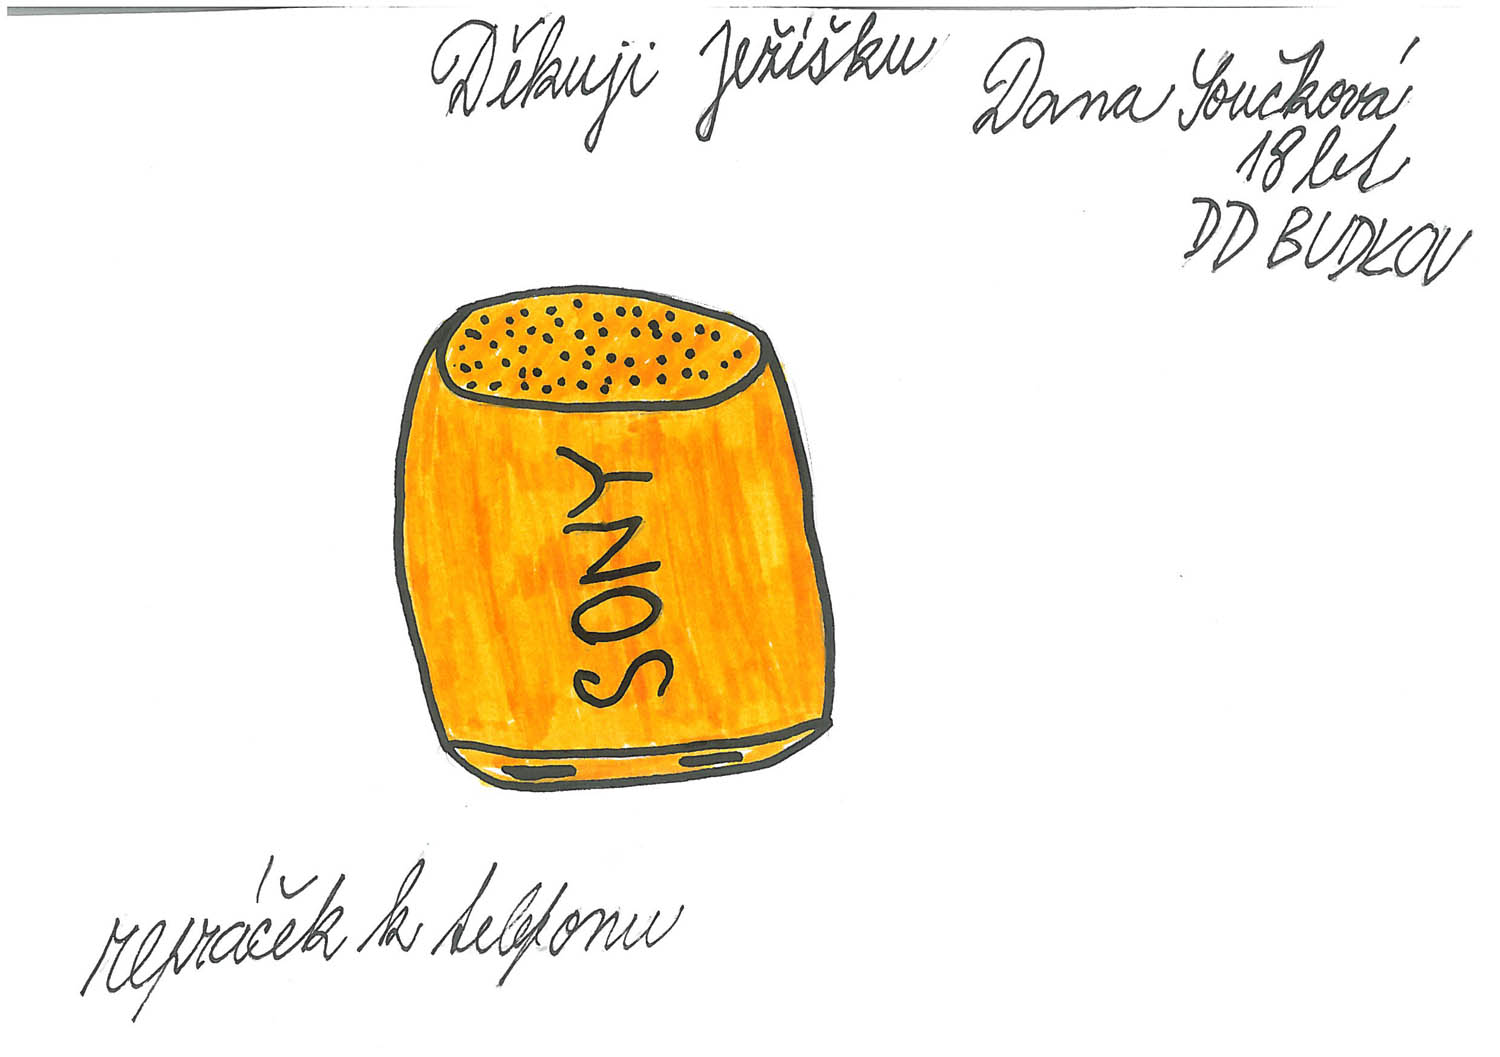 Děkuji Ježíšku
Dana Součková
18 let
DD BUDKOV
SONY
repráček k telefonu